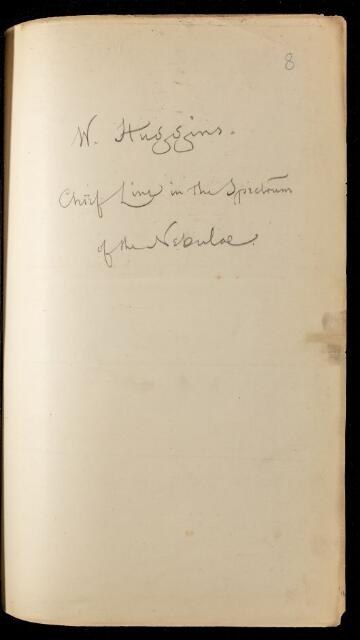 8
W. Huggins.
Chief Line in the Spectrum
of the Nebulae.